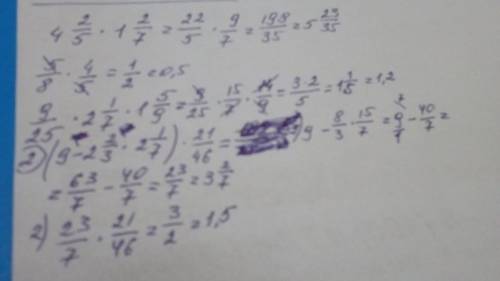 4 2/5 · 1 2/7 = 22/5 · 9/7 = 198/35 = 5 23/35
5/8 · 4/5 = 1/2 = 0,5
9/25 · 2 1/7 · 1 5/9 = 9/25 · 15/7 · 14/9 = 3·2/5 = 1 1/5 = 1,2
2) (9 - 2 2/3 · 2 1/7) · 21/46 = 9 - 8/3 · 15/7 = 9/1 - 40/7 =
= 63/7 - 40/7 = 23/7 = 3 2/7
2) 23/7 · 21/46 = 3/2 = 1,5